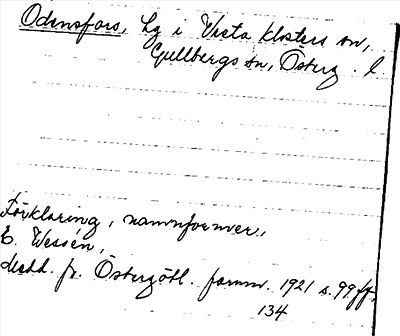 Odensfors, Lg i Vreta klosters sn,
Gullbergs hd, Österg. l.
Förklaring, namnformer,
E. Wessén,
Medd. fr. Östergötl. fornm. 1921 s. 99 ff,
134